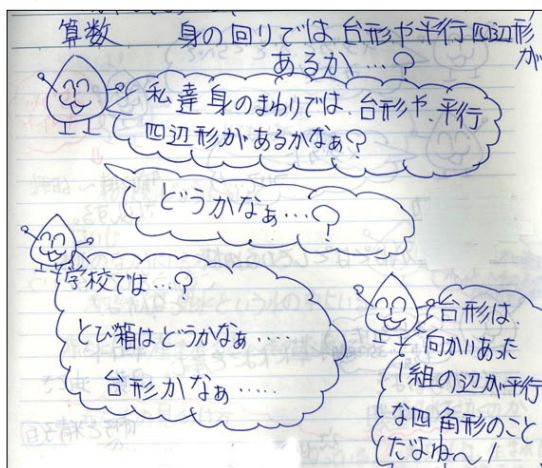 算数　身の回りでは台形や平行四辺形が
あるか…?
私達身のまわりでは、台形や、平行
四辺形があるかなぁ?
どうかなぁ…?
学校では…?
とび箱はどうかなぁ……
台形かなぁ……
台形は、
向かいあった
1組の辺が平行
な四角形のこと
だよね〜!